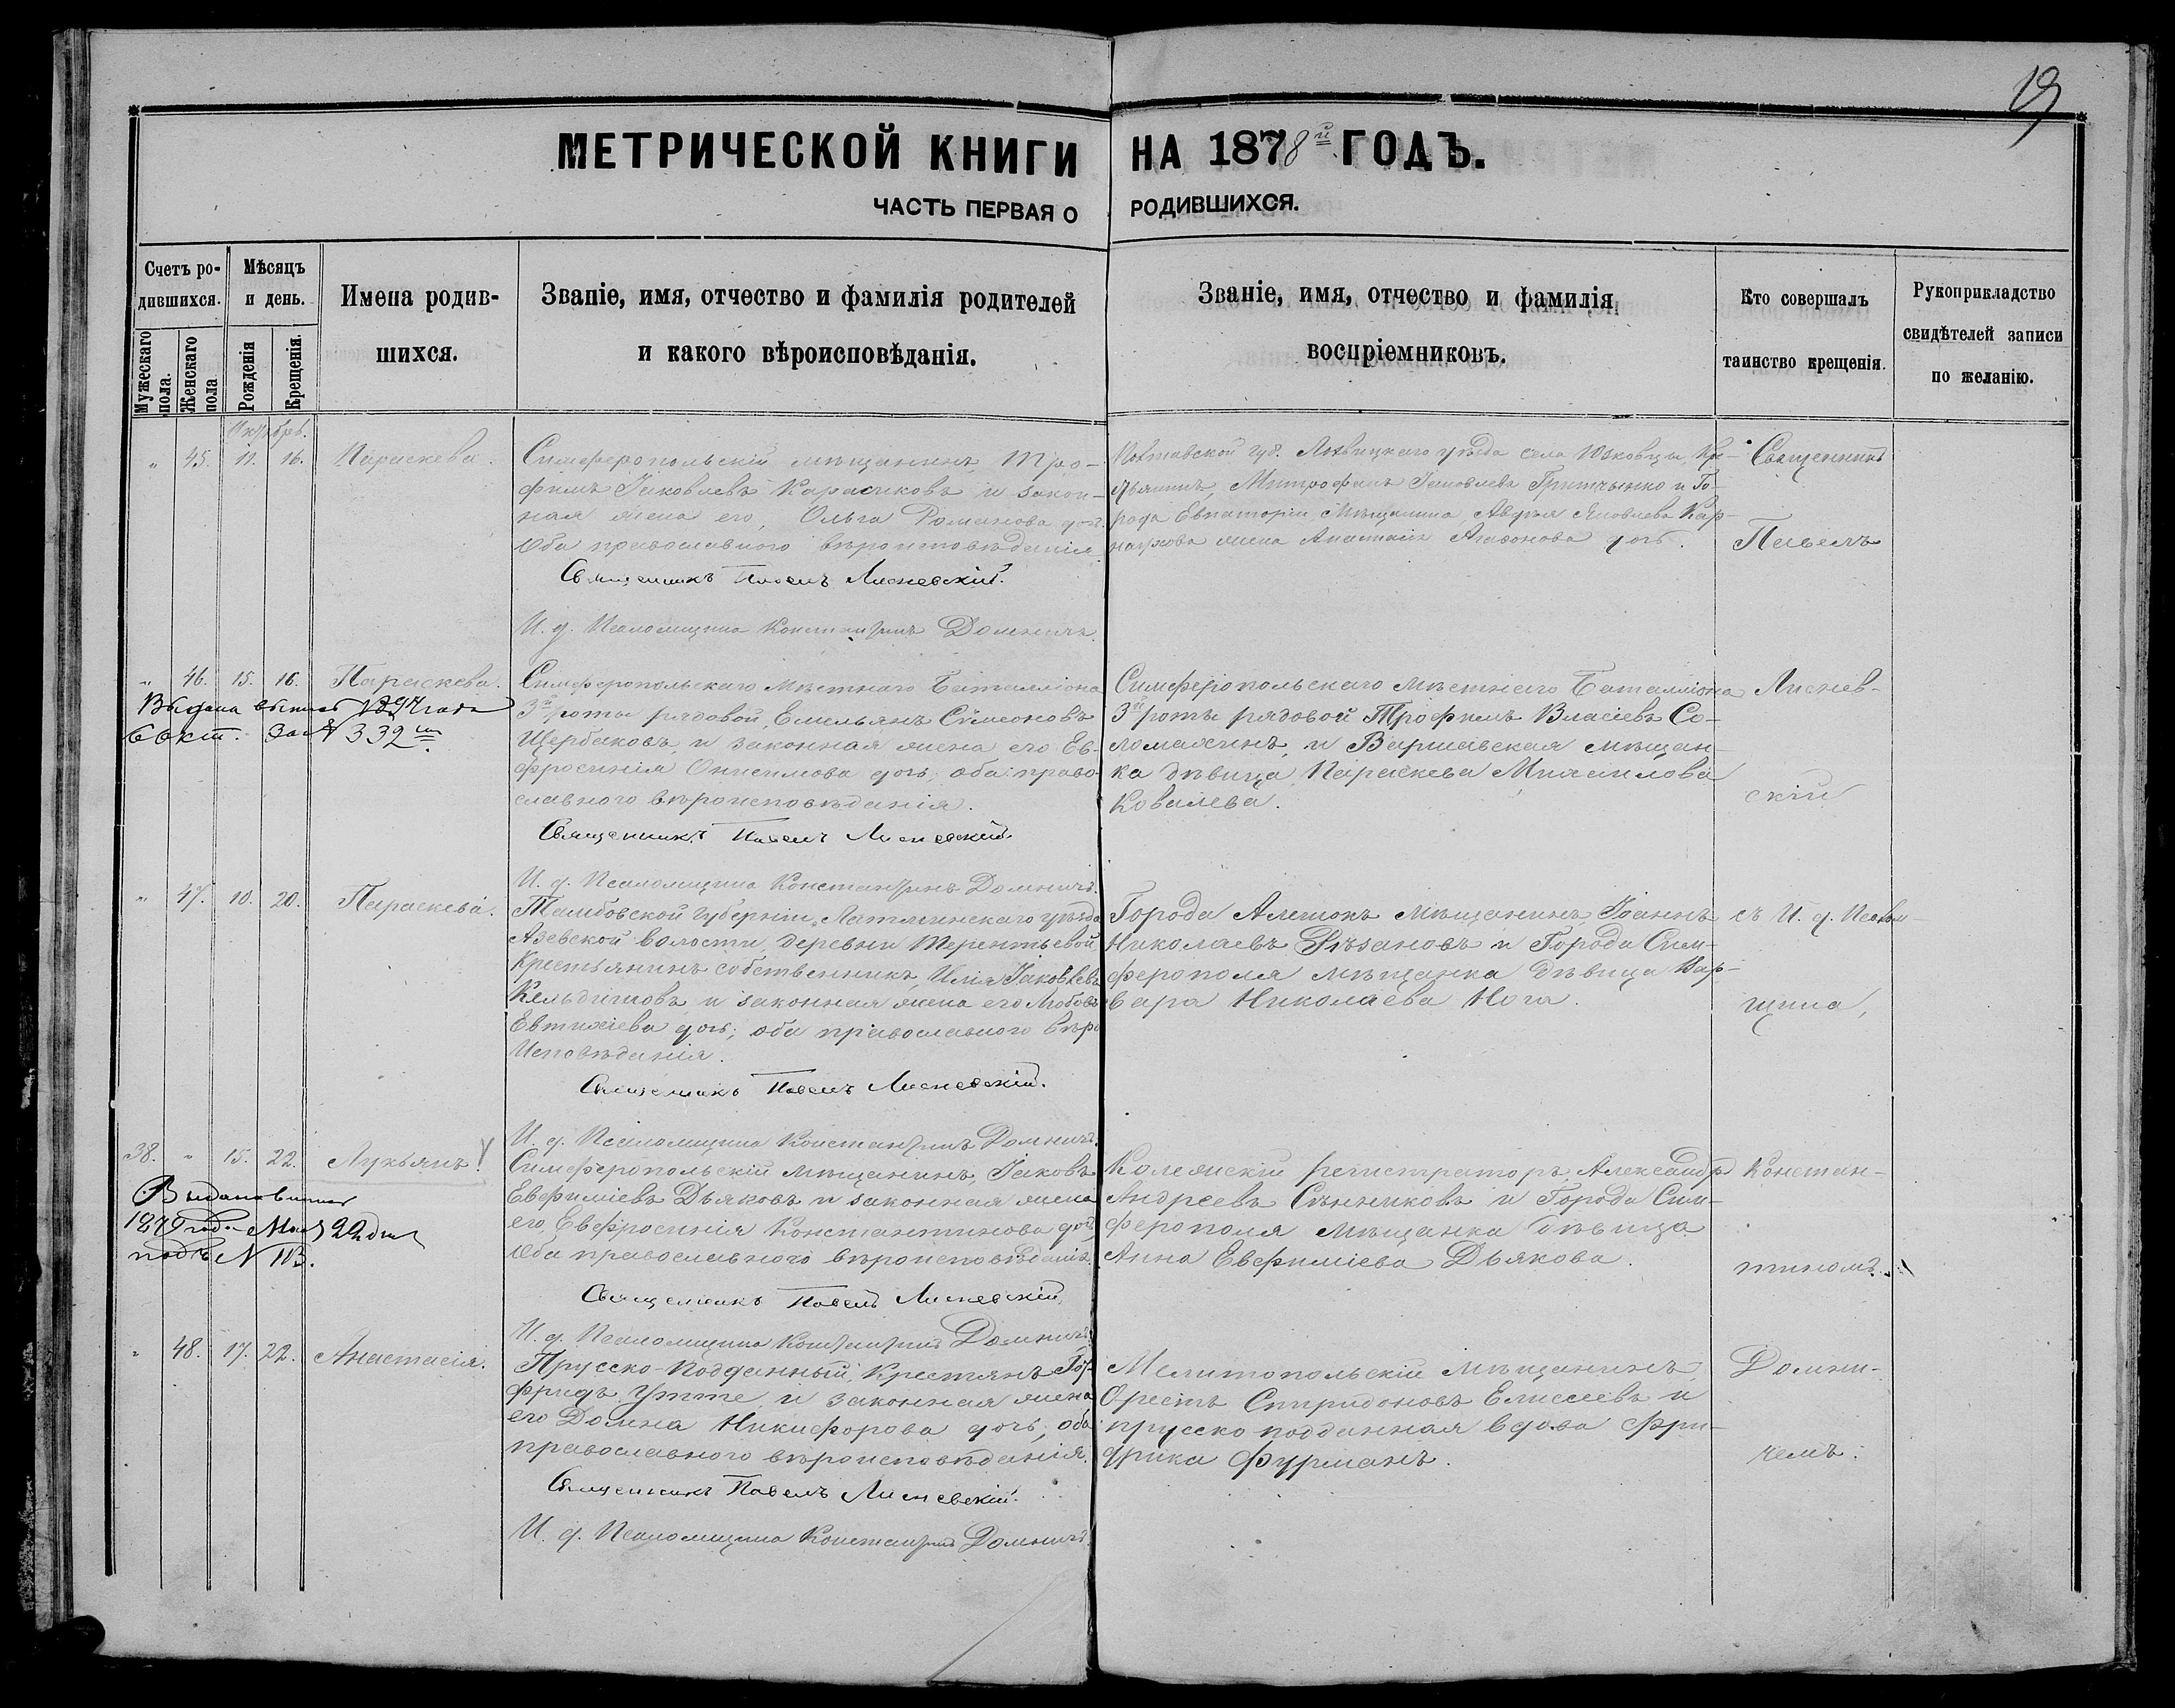 19
МЕТРИЧЕСКОЙ КНИГИ НА 1878й ГОДЪ.
ЧАСТЬ ПЕРВАЯ О РОДИВШИХСЯ.
Счетъ ро-
дившихся.
Мужескаго пола.
Женскаго пола
Мѣсяцъ
и день.
Рожденія
Крещенія.
Имена родив-
шихся.
Званіе, имя, отчество и фамилія родителей
и какого вѣроисповѣданія.
Званіе, имя, отчество и фамилія
воспріемниковъ.
Кто совершалъ
таинство крещенія.
Рукоприкладство
свидѣтелей записи
по желанію.
Октябрь.
" 45. 11. 16. Параскева.
Симферопольскій мѣщанинъ Тро-
фимъ Іаковлевъ Карасиковъ и закон-
ная жена его, Ольга Романова дочь.
Оба православного вѣроисповѣданія
Священникъ Павелъ Лисневскій.
И. д. Псаломщика Константинъ Домничъ.
Полтавской губ. уѣзда села Юзковцы, Кре-
Митрофанъ Іаковлевъ и Го-
рода Евпаторіи Мѣщанина, Яковлева Кар-
наухова жена Анастасія Агафонова дочь.
Священникъ
Павелъ
" 46. 15. 16. Параскева.
Выдана выпись 1894 года
6 окт. за № 332
Симферопольскаго Мѣстнаго Баталліона
3й роты рядовой, Емельянъ Сѵмеоновъ
Щербаковъ, и законная жена его Ев-
фросинія Онисимова дочь; оба право-
славного вѣроисповѣданія.
Священникъ Павелъ Лисневскій
И. д. Псаломщика Константинъ Домничъ.
Симферопольскаго Мѣстнаго Баталліона
3й роты рядовой Трофимъ Власіевъ Со-
ломахинъ, и Варшавская мѣщан-
ка дѣвица, Параскева Михаилова
Ковалева.
Лиснев-
скій
" 47. 10. 20. Параскева.
Тамбовской Губерніи, уѣзда
Азевской волости деревни Терентьевой
Крестьянинъ собственникъ, Илія Іаковлевъ
Кельдишовъ и законная жена его Любовь
Евтихіева дочь; оба православного вѣро
Исповѣданія.
Священникъ Павелъ Лисневскій.
И. д. Псаломщика Константинъ Домничъ.
Города Алешокъ Мѣщанинъ, Іоаннъ
Николаевъ Рѣзановъ и Города Сим-
ферополя мѣщанка дѣвица Вар-
вара Николаева Нога.
съ И. д. Псалом-
щика,
38. " 15. 22. Лукьянъ.
Выдана выпись
1879 года Мая 22 дня
подъ № 113.
Симферопольскій мѣщанинъ, Іаковъ
Евфиміевъ Дьяковъ и законная жена
его, Евфросинія Константинова дочь,
Оба православного вѣроисповѣданія.
Священникъ Павелъ Лисневскій
И. д. Псаломщика Константинъ Домничъ.
Колежскій регистраторъ, Александръ
Андреевъ Сѣнниковъ и Города Сим-
ферополя мѣщанка дѣвица
Анна Евфиміева Дьякова.
Констан-
тиномъ
" 48. 17. 22. Анастасія.
Прусско-подданный, Крестянъ Гот-
фридъ Утте и законная жена
его Домна Никифорова дочь; оба
православного вѣроисповѣданія.
Священникъ Павелъ Лисневскій.
И. д. Псаломщика Константинъ Домничъ.
Мелитопольскій Мѣщанинъ,
Орестъ Спиридоновъ Елисеевъ и
прусско подданная вдова Фри-
дрика Фурманъ.
Домни-
чемъ.